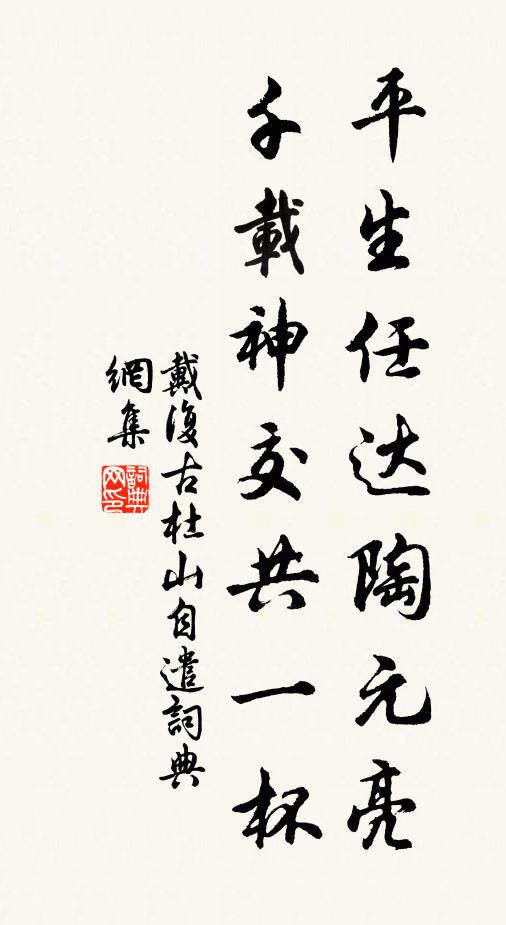 平生任达陶元亮
千載神交共一杯
戴復古杜山自遣詞典
網集
詞典網印